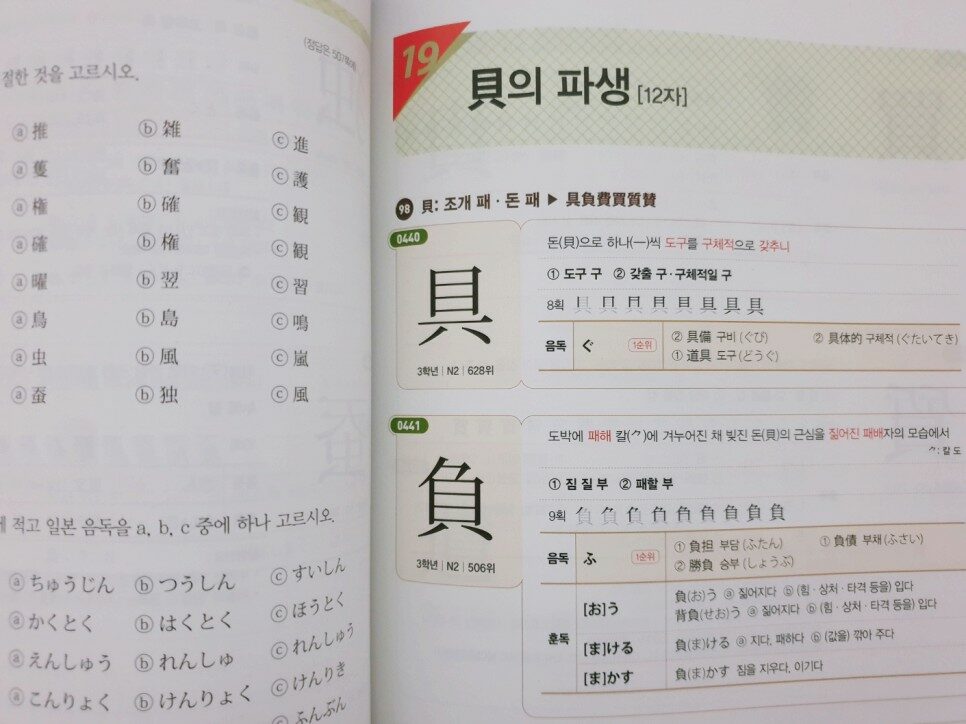 (정답은 507쪽에)
절한 것을 고르시오.
ⓐ 推 ⓑ 雑 ⓒ 進
ⓐ 隻 ⓑ 奮 ⓒ 護
ⓐ 権 ⓑ 確 ⓒ 観
ⓐ 確 ⓑ 権 ⓒ 観
ⓐ 曜 ⓑ 翌 ⓒ 習
ⓐ 鳥 ⓑ 島 ⓒ 鳴
ⓐ 虫 ⓑ 風 ⓒ 嵐
ⓐ 蚕 ⓑ 独 ⓒ 風
에 적고 일본 음독을 a, b, c 중에 하나 고르시오.
ⓐ ちゅうじん ⓑ つうしん ⓒ すいしん
ⓐ かくとく ⓑ はくとく ⓒ ほうとく
ⓐ えんしゅう ⓑ れんしゅ ⓒ れんしゅう
ⓐ こんりょく ⓑ けんりょく ⓒ けんりき
ⓒ ふんぶん
19
貝의 파생 [12자]
98 貝: 조개 패 · 돈 패 ▶ 具負費買質賛
0440
具
3학년 | N2 | 628위
돈(貝)으로 하나(一)씩 도구를 구체적으로 갖추니
① 도구 구 ② 갖출 구 · 구체적일 구
8획
음독 ぐ 1순위 ② 具備 구비 (ぐび) ② 具体的 구체적 (ぐたいてき)
① 道具 도구 (どうぐ)
0441
負
3학년 | N2 | 506위
도박에 패해 칼(⺈)에 겨누어진 채 빚진 돈(貝)의 근심을 짊어진 패배자의 모습에서
⺈: 칼 도
① 짐 질 부 ② 패할 부
9획
음독 ふ 1순위 ① 負担 부담 (ふたん) ① 負債 부채 (ふさい)
② 勝負 승부 (しょうぶ)
훈독
[お]う 負(お)う ⓐ 짊어지다 ⓑ (힘 · 상처 · 타격 등을) 입다
背負(せお)う ⓐ 짊어지다 ⓑ (힘 · 상처 · 타격 등을) 입다
[ま]ける 負(ま)ける ⓐ 지다, 패하다 ⓑ (값을) 깎아 주다
[ま]かす 負(ま)かす 짐을 지우다, 이기다